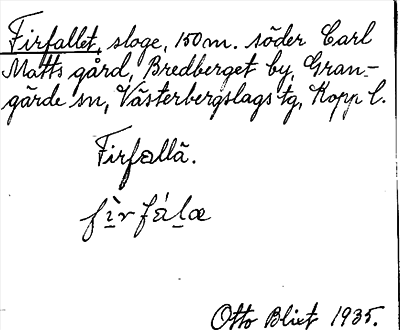 Firfallet, sloge, 150 m. söder Carl
Matts gård, Bredberget by, Gran-
gärde sn, Västerbergslags tg, Kopp l.
Firfallä.
Otto Blixt 1935.